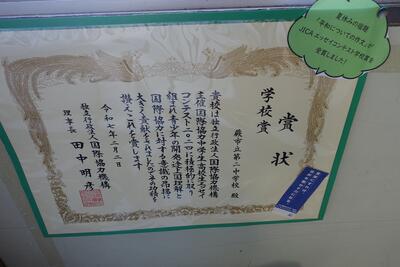 夏休みの宿題
「平和についての作文」が
JICAエッセイコンテスト学校賞を
受賞しました！
賞状
学校賞
蕨市立第二中学校 殿
貴校は独立行政法人国際協力機構
主催国際協力中学生・高校生エッセイ
コンテスト二〇二四に積極的に取り
組まれ青少年の開発途上国理解と
国際協力に対する意識の昂揚に
大きく貢献されましたのでその功績を
讃えこれを賞します
令和七年二月二日
独立行政法人国際協力機構
理事長 田中明彦